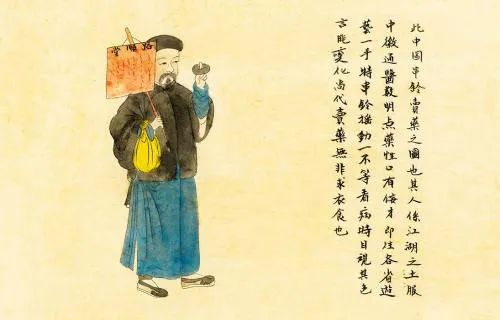 路順堂
此中国串鈴賣藥之圖也其人係江湖之士服
中微通醫數明点藥性口有侫才即往各省遊
藝一手持串鈴搖動一不等看病時目視其色
言能變化尚代賣藥無非求衣食也